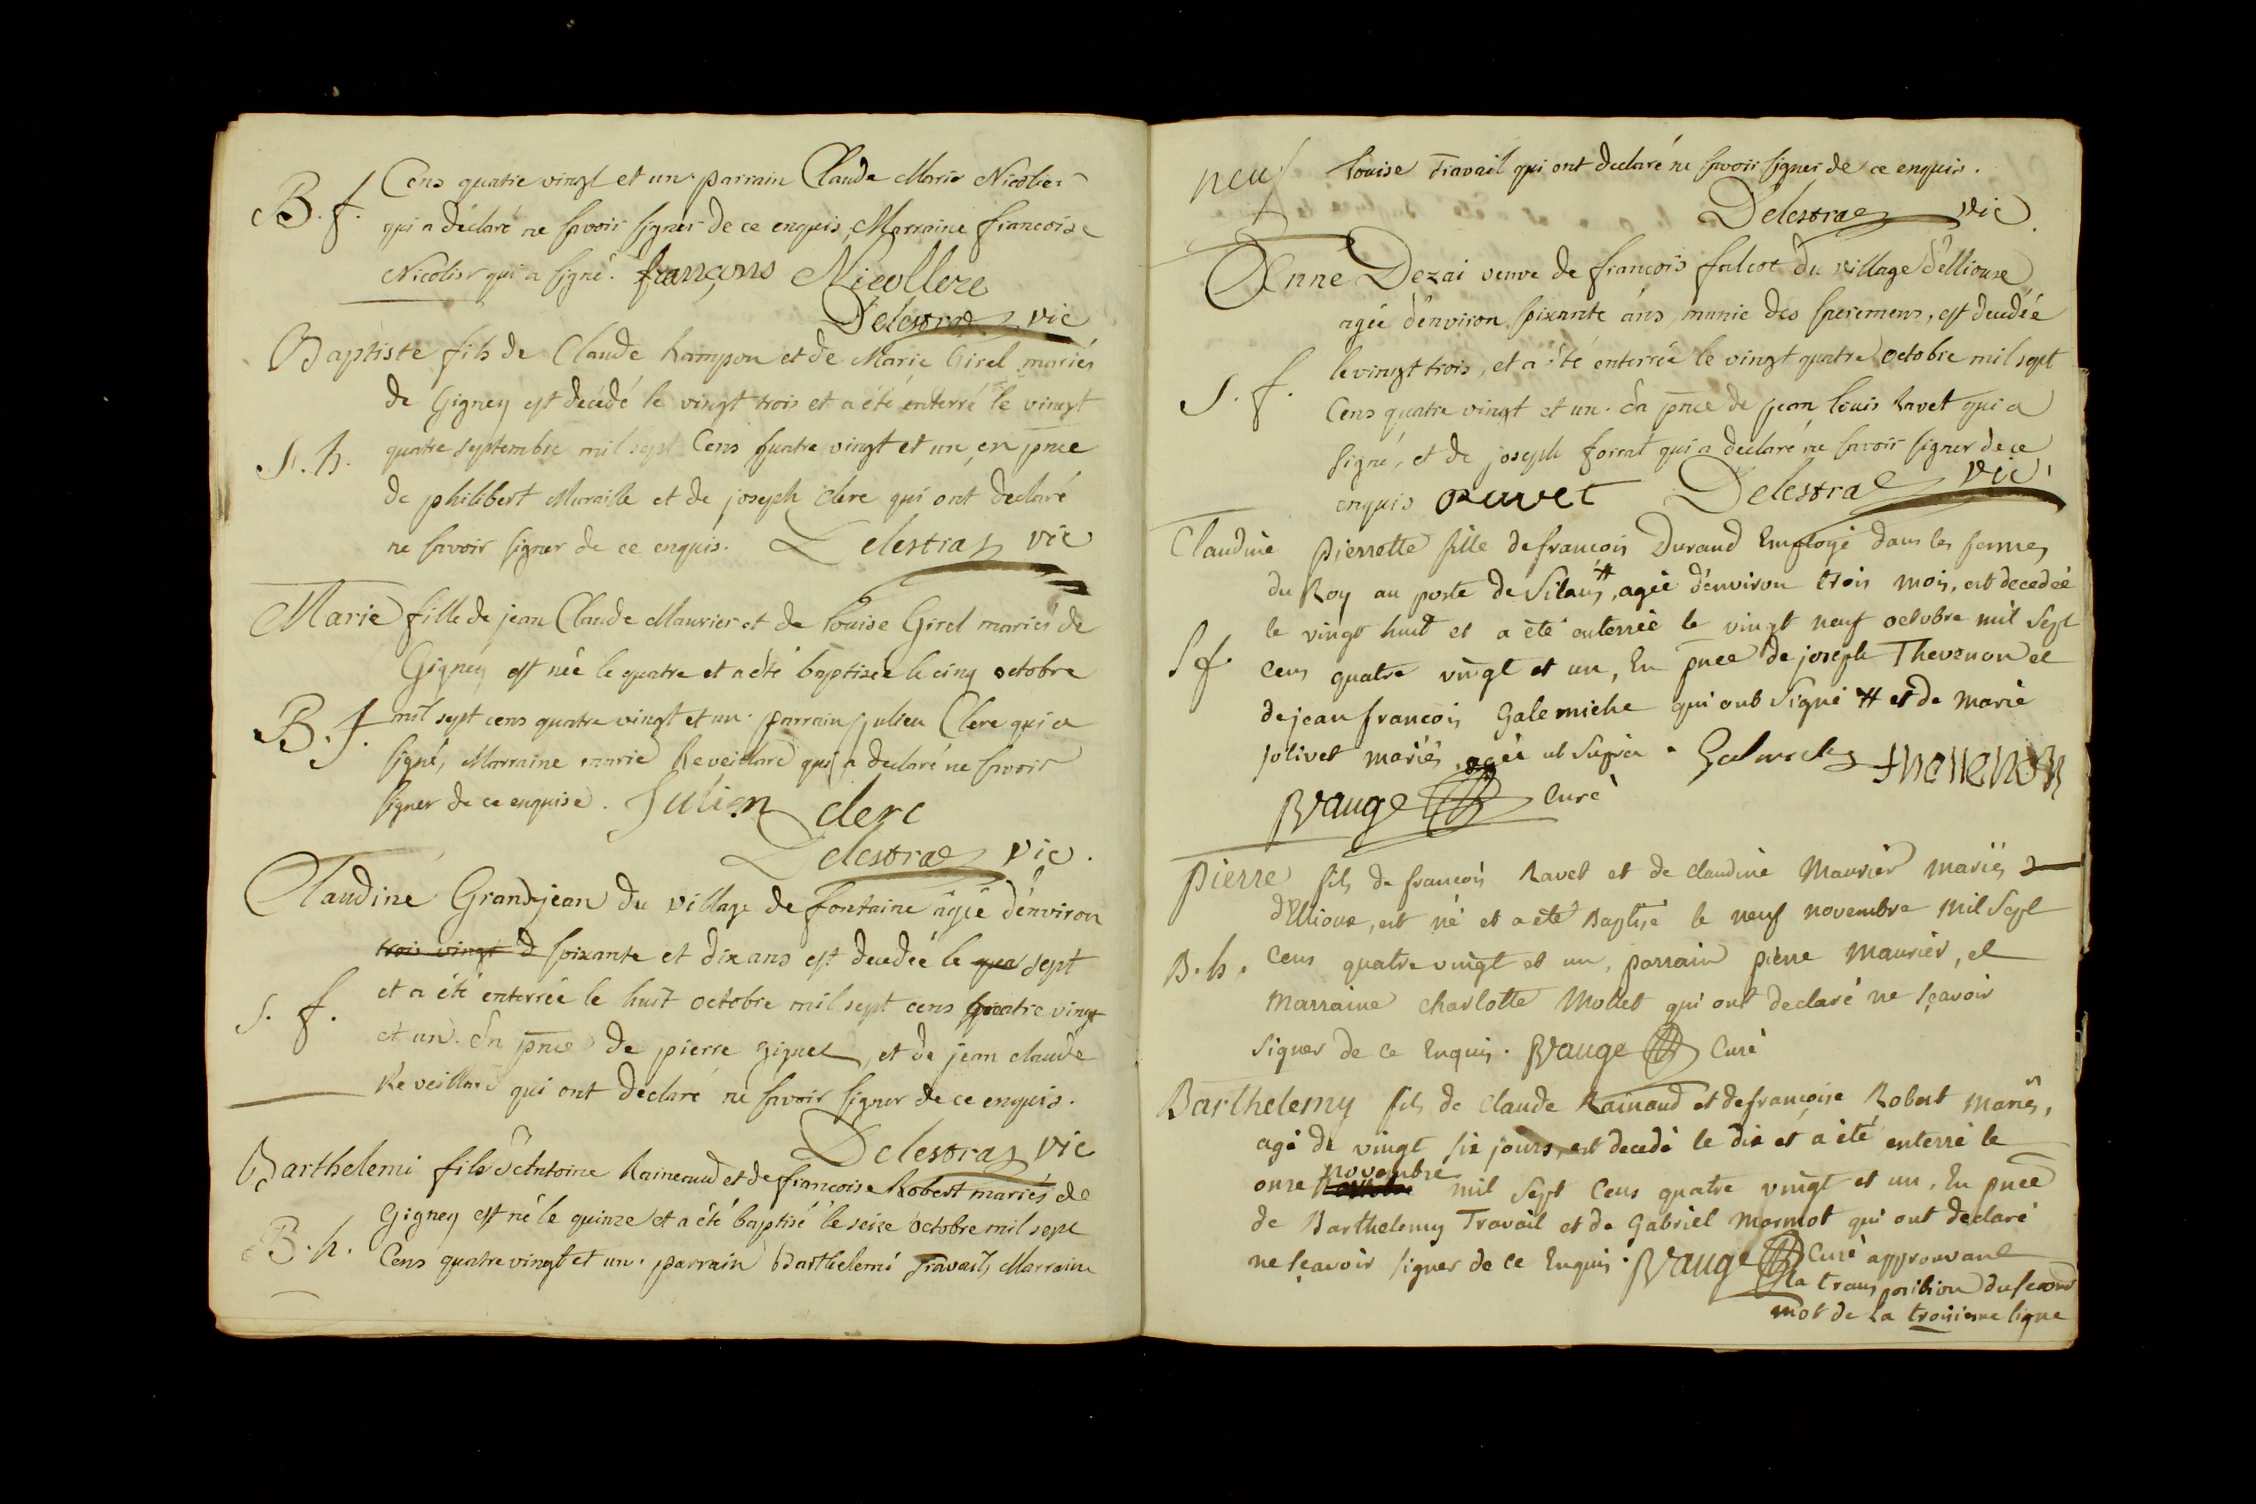 Cens quatre vingt et un. parrain Claude Marie Nicolier
B. f.
qui a déclaré ne savoir signer de ce enquis, Marraine francoise
Nicolier qui a signé. françons Nicollere
Delestraz vic
Baptiste fils de Claude Rampon et de Marie Girel mariés
de Gigney est décédé le vingt trois et a été enterré le vingt
S. h.
quatre septembre mil sept Cens quatre vingt et un, en pnce
de philibert Muraille et de joseph clerc qui ont déclaré
ne savoir signer de ce enquis. Delestraz vic
Marie fille de jean Claude Maurier et de louise Girel mariés de
Gigney est née le quatre et a été baptisée le cinq octobre
B. f.
mil sept cens quatre vingt et un. parrain julien Clerc qui a
signé, Marraine marie Reveillard qui a declaré ne savoir
signer de ce enquise. Julien clerc
Delestraz vic.
Claudine Grandjean du village de fontaine agée d'environ
trois vingt d soixante et dix ans est decedée le qua sept
S. f.
et a été enterrée le huit octobre mil sept cens quatre vingt
et un. En pnce de pierre Ziguet, et de jean claude
Reveillard qui ont déclaré ne savoir signer de ce enquis.
Delestraz vic
Barthelemi fils d'Antoine Raineaud et de francoise Robert mariés de
Gigney est né le quinze et a été baptisé le seize octobre mil sept
B. h.
Cens quatre vingt et un. parrain Barthelemi Travail, Marraine
neuf
louise Travail qui ont declaré ne savoir signer de ce enquis.
Delestraz vic.
Anne Dezai veuve de francois falcot du village d'Elliouse
agée d'environ soixante ans, munie des sacremens, est decedée
S. f.
le vingt trois, et a été enterrée le vingt quatre octobre mil sept
Cens quatre vingt et un. En pnce de jean louis Ravet qui a
signé, et de joseph forrat qui a declaré ne savoir signer de ce
enquis Ravet Delestraz vic.
Claudine pierrette fille de francois Durand Employé dans les fermes
du Roy au poste de Silans #, agée d'environ trois mois, est decedée
S f.
le vingt huit et a été enterrée le vingt neuf octobre mil sept
cens quatre vingt et un, En pnce de joseph Thevenon et
de jean francois Galemiche qui ont signé # et de marie
jolivet mariés, agée ut supra. Thevenon
Vauge Curé
pierre fils de francois Ravet et de claudine Maurier mariés
d'Elliouse, est né et a été Baptisé le neuf novembre mil sept
B. h.
Cens quatre vingt et un, parrain pierre Maurier, et
marraine charlotte Mollet qui ont declaré ne sçavoir
signer de ce Enquis. Vauge Curé
Barthelemy fils de claude Rainaud et de francoise Robert mariés,
agé de vingt six jours, est decedé le dix et a été enterré le
novembre
onze mil sept Cens quatre vingt et un, En pnce
de Barthelemy Travail et de Gabriel Marmot qui ont declaré
ne sçavoir signer de ce Enquis. Vauge Curé approuvant
la transposition du second
mot de la troisieme ligne